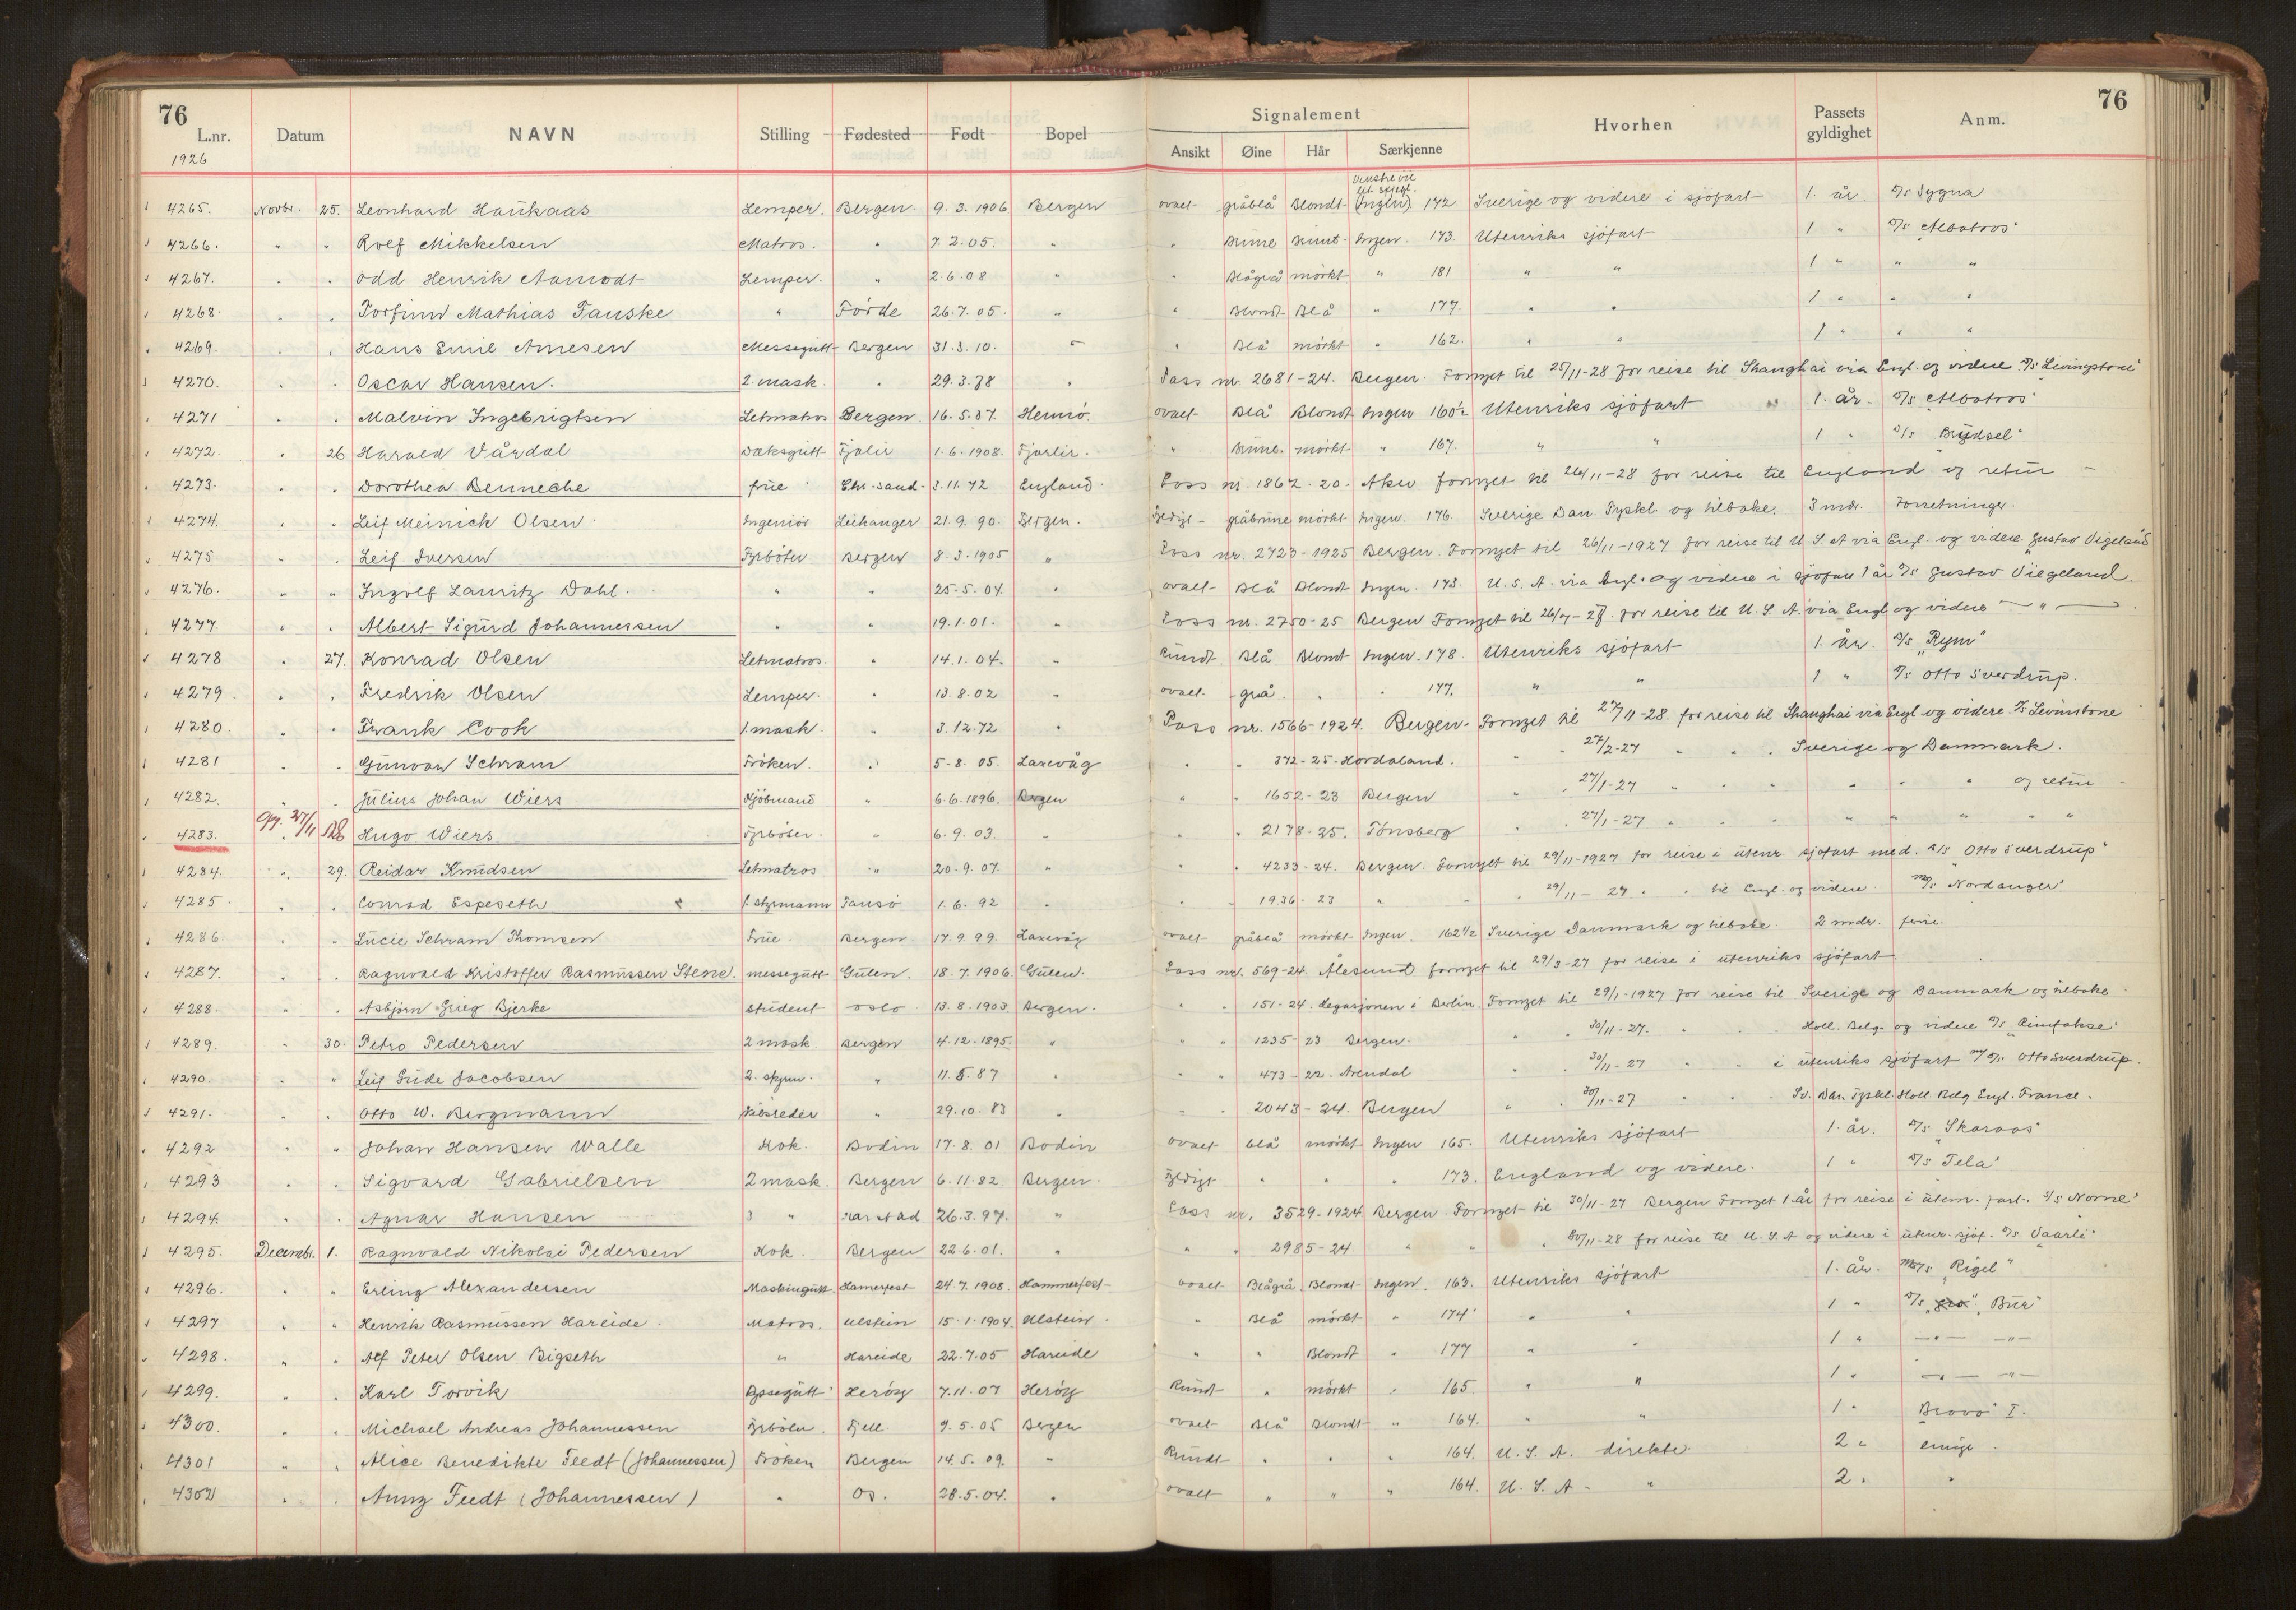 76
76
L.nr. Datum NAVN Stilling Fødested Født Bopel Signalement Hvorhen Passets gyldighet Anm.
Ansikt Øine Hår Særkjenne
1926
4265. Novbr. 25. Leonhard Haukaas Lemper. Bergen 9.3.1906 Bergen ovalt gråblå Blondt (Ingen) 172 Sverige og videre i sjöfart 1. år. D/s Sygna
4266. " " Rolf Mikkelsen Matros. " 7.2.05. " " Brune brunt Ingen. 173. Utenriks sjöfart 1 " D/s "Albatros"
4267. " " Odd Henrik Aamodt Lemper. " 2.6.08 " " Blågrå mörkt " 181 " " 1 " " "
4268. " " Torfinn Mathias Fauske " Förde 26.7.05. " " Blondt Blå " 177. " " 1 " " "
4269. " " Hans Emil Arnesen Messegutt Bergen 31.3.10. " " Blå mörkt " 162. " " 1 " " "
4270. " " Oscar Hansen. 2. mask. " 29.3.78 " Pass nr. 2681-24. Bergen. Fornyet til 25/11-28 for reise til Shanghai via Engl. og videre D/s "Levingstone"
4271 " " Malvin Ingebrigtsen Letmatros Bergen 16.5.07. ovalt Blå Blondt Ingen 160½ Utenriks sjöfart 1. år. D/s "Albatros"
4272. " 26 Harald Vårdal Dæksgutt Fjaler 1.6.1908. Fjorlir. " Brune. mörkt " 167. " " 1 " D/s "Brüdsel"
4273. " " Dorothea Benneche frue Chr.sand 2.11.72 England Pass nr. 1867-20. Aker fornyet til 26/11-28 for reise til England og retur
4274. " " Leif Meinich Olsen Ingeniör Leikanger 21.9.90. Bergen. gråbrune mörkt Ingen. 176. Sverige Dan. Tyskl. og tilbake. 3 mdr. Forretninger.
4275 " " Leif Iversen Fyrböter Bergen 8.3.1905 " Pass nr. 2723-1925 Bergen. Fornyet til 26/11-1927 for reise til U.S.A via Engl. og videre. "Gustav Vigeland
4276. " " Ingolf Lauritz Dahl. " " 25.5.04. " ovalt Blå Blondt Ingen. 173. U.S.A. via Engl. og videre i sjöfart 1 år D/s Gustav Viegeland.
4277. " " Albert Sigurd Johannessen " " 19.1.01. " Pass nr. 2750-25 Bergen Fornyet til for reise til U.S.A. via Engl og videre — " —
4278 " 27. Konrad Olsen Letmatros. " 14.1.04. " Rundt Blå Blondt Ingen. 178. Utenriks sjöfart 1. år. D/s "Rym"
4279. " " Fredrik Olsen Lemper. " 13.8.02 " ovalt grå. " " 177. " " 1 " D/s Otto Sverdrup.
4280. " " Frank Cook 1. mask. " 3.12.72 " Pass nr. 1566-1924. Bergen. Fornyet til 27/11-28. for reise til Shanghai via Engl og videre. D/s Levinstone
4281 " " Gunvor Schram Fröken. " 5.8.05. Laxevåg " " 372-25. Hordaland. " " 27/2-27 " " " Sverige og Danmark.
4282. " " Julius Johan Wiers Kjöbmand " 6.6.1896. Bergen " " 1652-23 Bergen " " 27/1-27 " " " " " og retur
4283. 27/11 Hugo Wiers Fyrböter. " 6.9.03. " " " 2178-25. Tönsberg " " 27/1-27 " " " " " "
4284. " 29. Reidar Knudsen Letmatros " 20.9.07. " " " 4233-24. Bergen. Fornyet til 29/11-1927 for reise i utenr. sjöfart med. D/s "Otto Sverdrup"
4285. " " Conrad Espeseth 1. Styrmann Fansö 1.6.92 " " " 1936-23 " " " 29/11-27 " " til Engl. og videre. M/s "Nordanger"
4286. " " Lucie Schram Thomsen Frue. Bergen 17.9.99. Laxevåg ovalt gråblå mörkt Ingen. 162½ Sverige Danmark og tilbake. 2 mdr. ferie.
4287. " " Ragnvald Kristoffer Rasmussen Stene. messegutt Gulen. 18.7.1906. Gulen. Pass nr. 569-24. Ålesund fornyet til 29/3-27 for reise i utenriks sjöfart
4288. " " Asbjörn Grieg Bjerke student oslo 13.8.1903. Bergen. " " 151-24. Legasjonen i Berlin. Fornyet til 29/1-1927 for reise til Sverige og Danmark og tilbake.
4289. " 30. Petro Pedersen 2 mask. Bergen 4.12.1895. " " " 1235-23 Bergen. " " 30/11-27. " " " Holl. Belg. og videre D/s "Rimfakse"
4290. " " Leif Gude Jacobsen 2. styrm. " 11.5.87 " " " 473-22. Arendal " " 30/11-27 " " i utenriks sjöfart Otto Sverdrup.
4291. " " Otto W. Bergmann Skibsreder " 29.10.83 " " " 2043-24. Bergen " " 30/11-27 " " " Sv. Dan. Tyskl. Holl. Belg Engl. France.
4292 " " Johan Hansen Walle Kok. Bodin 17.8.01 Bodin ovalt blå mörkt Ingen 165. Utenriks sjöfart 1. år. D/s "Skaraas"
4293 " " Sigvard Gabrielsen 2 mask. Bergen 6.11.82. Bergen. " " " 173. England og videre. 1 " D/s "Tela"
4294. " " Agnar Hansen 3 " Harstad 26.3.97. " Pass nr. 3529-1924 Bergen. Fornyet til 30/11-27 Bergen Fornyet 1 år for reise i utenr. fart. S/S Norne"
4295. Decembr. 1. Ragnvald Nikolai Pedersen Kok. Bergen 22.6.01. " " " 2985-24 " " " 30/11-28 for reise til U.S.A og videre i utenr. sjöf. D/s "Vaarli"
4296. " " Erling Alexandersen Maskingutt. Hamerfest 24.7.1908. Hammerfest ovalt Blågrå Blondt Ingen. 163. Utenriks sjöfart 1. år. M/s "Rigel"
4297 " " Henrik Rasmussen Hareide. Matros. Ulstein 15.1.1904. Ulstein. " Blå mörkt " 174 " " 1 " D/s "Bur"
4298. " " Alf Peter Olsen Bigseth " Hareide 22.7.05 Hareide " " Blondt " 177 " " 1 " — " — — " —
4299. " " Karl Torvik Dyssegutt Heröy 7.11.07 Heröy Rundt " mörkt " 165 " " 1 " — " — — " —
4300. " " Michael Andreas Johannessen Fyrböter. Fjell. 9.5.05 Bergen ovalt Blå Blondt " 164. " " 1 " "Bravo" I.
4301 " " Alice Benedikte Feedt (Johannessen) Fröken Bergen 14.5.09. " Rundt " " " 164. U.S.A. direkte. 2 "
4302 " " Anny Feedt (Johannessen) " Os. 28.5.04. " ovalt " " " 164. U.S.A. " 2 " "